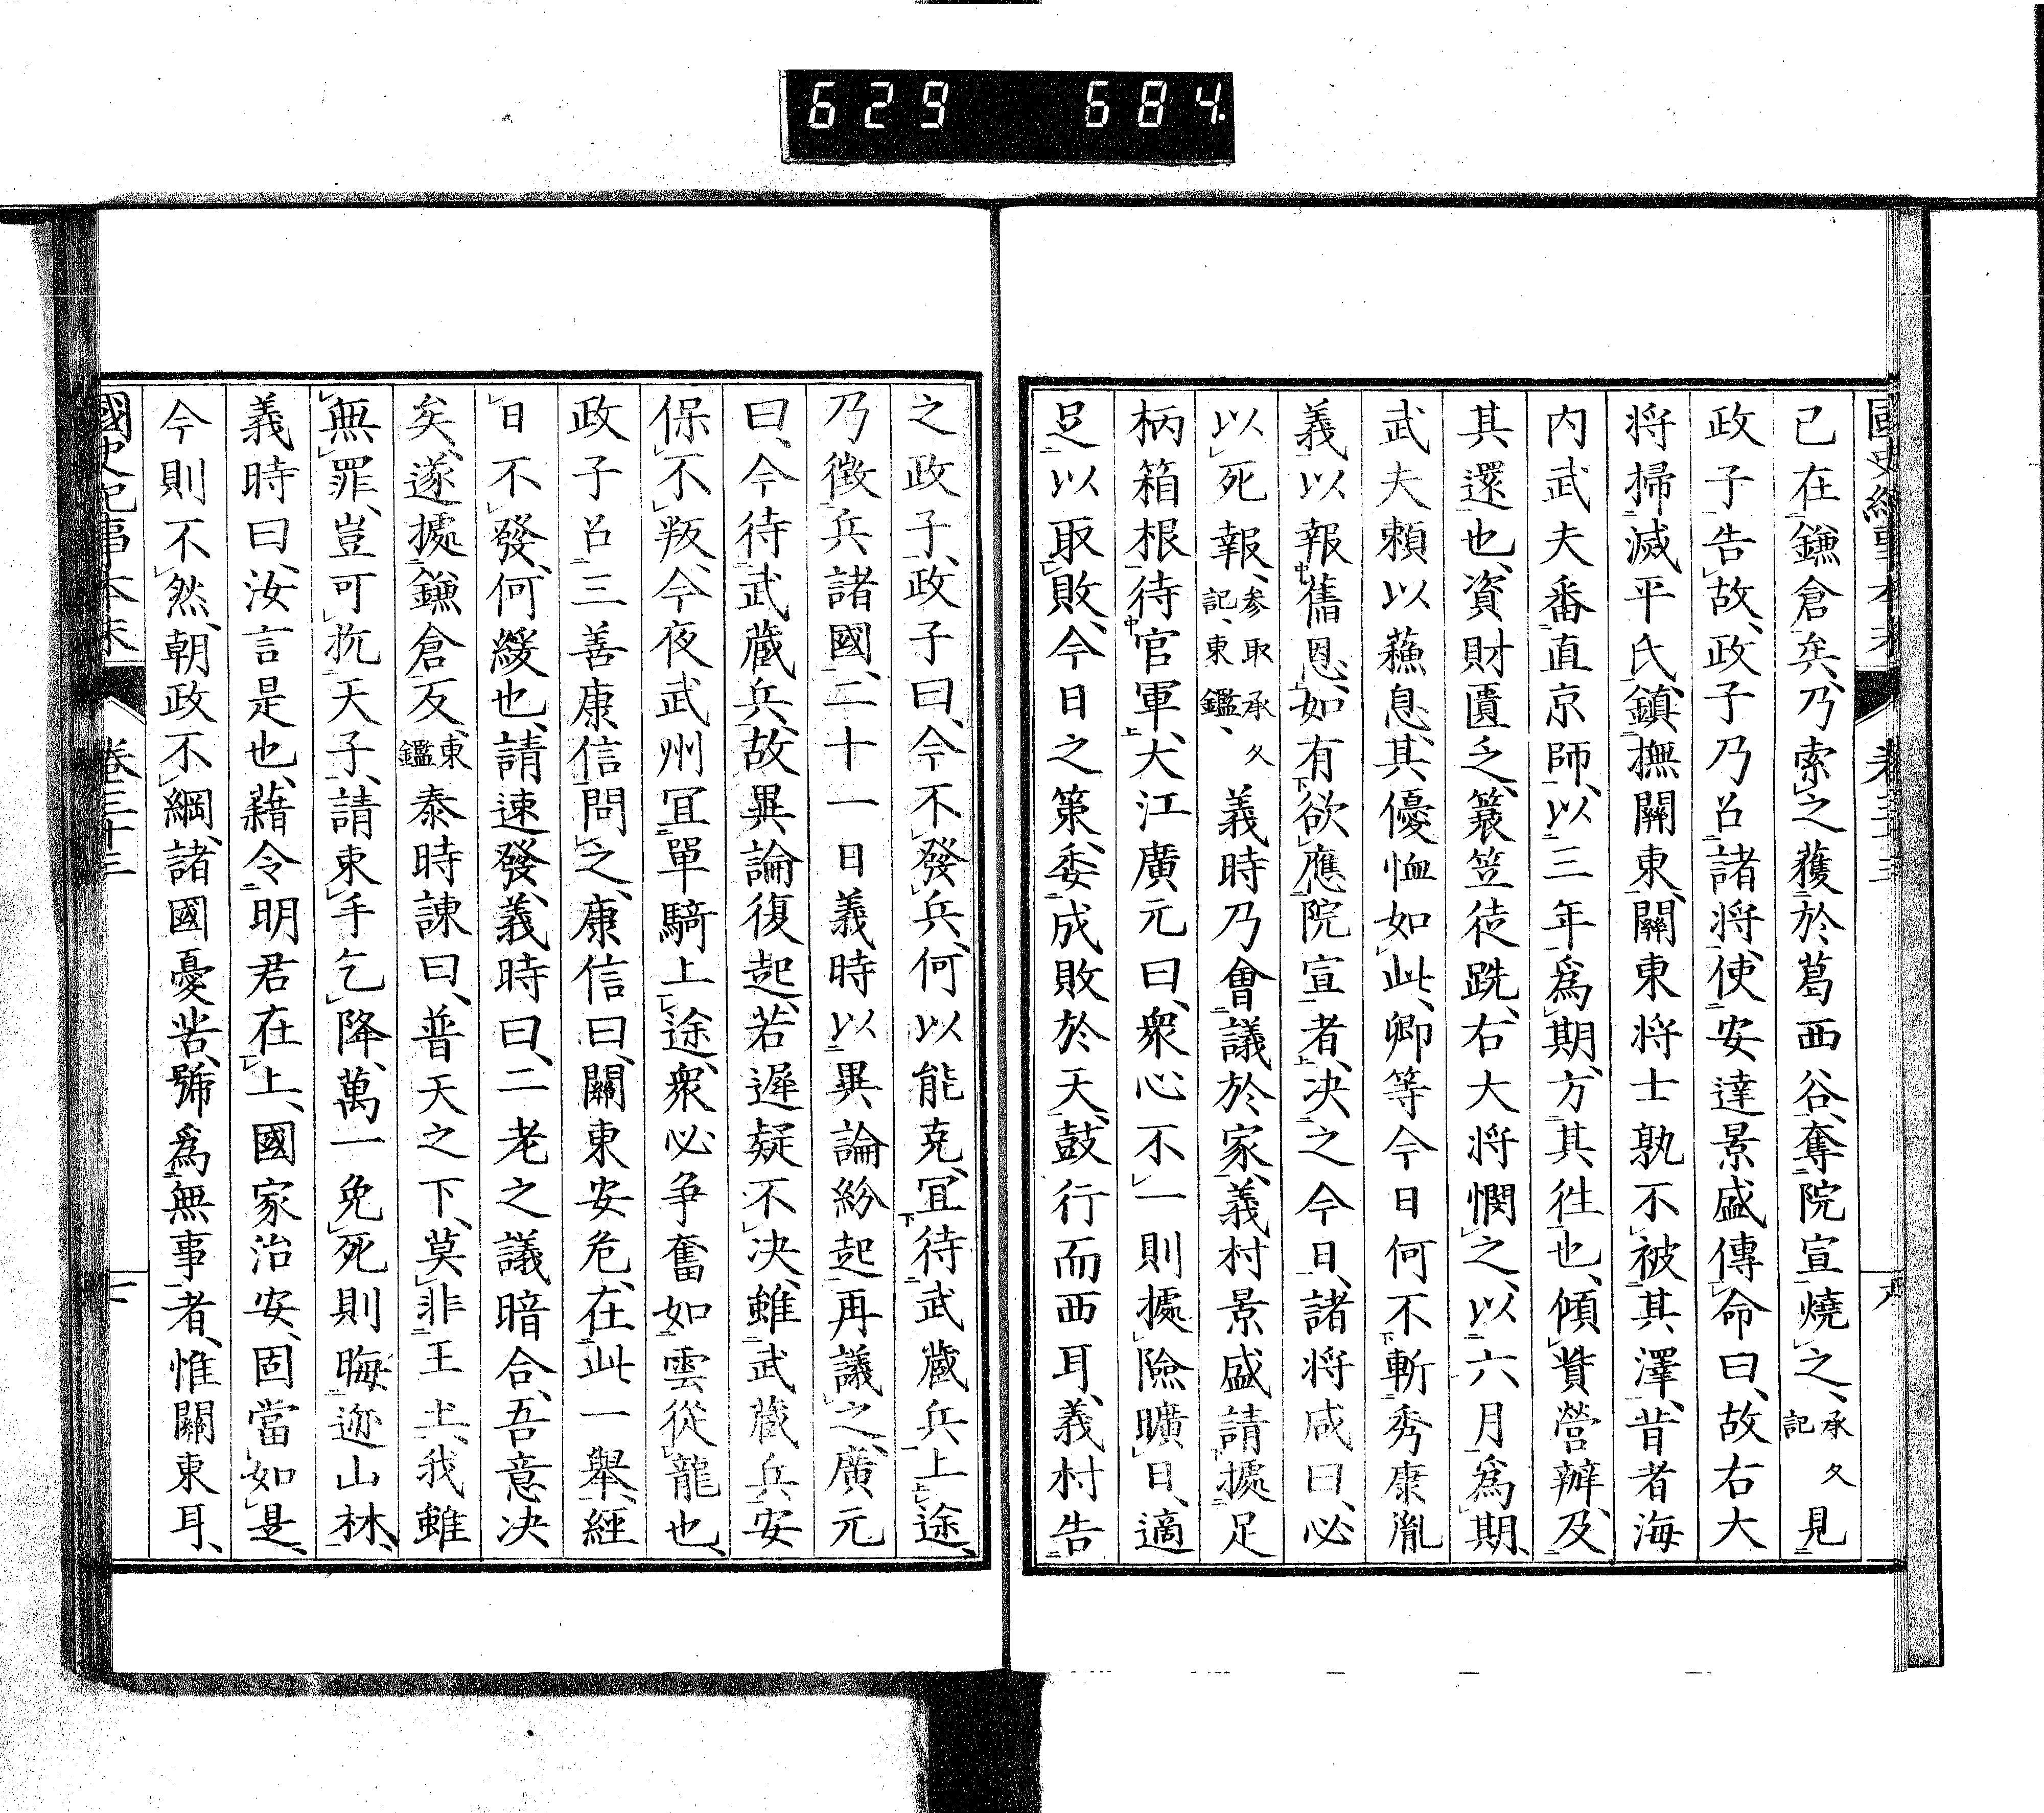 629 684
國史紀事本末 卷三十三
已在鎌倉矣、乃索之獲於葛西谷、奪院宣燒之、承久記見
政子告故、政子乃召諸將、使安達景盛傳命曰、故右大
將掃滅平氏、鎮撫關東、關東將士孰不被其澤、昔者海
内武夫番直京師、以三年爲期、方其往也、傾貲營辦、及
其還也、資財匱乏、簑笠徒跣、右大將憫之、以六月爲期、
武夫賴以蘇息、其優恤如此、卿等今日何不斬秀康胤
義以報舊恩、如有欲應院宣者、决之今日、諸將咸曰、必
以死報、参取承久記、東鑑、義時乃會議於家、義村景盛請據足
柄箱根待官軍、大江廣元曰、衆心不一則據險曠日、適
足以取敗、今日之策、委成敗於天、鼓行而西耳、義村告
之政子、政子曰、今不發兵、何以能克、宜待武藏兵上途、
乃徵兵諸國、二十一日義時以異論紛起再議之、廣元
曰、今待武藏兵、故異論復起、若遲疑不决、雖武藏兵、安
保不叛、今夜武州宜單騎上途、衆必争奮如雲從龍也、
政子召三善康信問之、康信曰、關東安危、在此一舉、經
日不發、何緩也、請速發、義時曰、二老之議暗合、吾意决
矣、遂據鎌倉反、東鑑泰時諫曰、普天之下、莫非王土、我雖
無罪、豈可抗天子、請束手乞降、萬一免死則晦迹山林、
義時曰、汝言是也、藉令明君在上、國家治安、固當如是、
今則不然、朝政不綱、諸國憂苦、號爲無事者、惟關東耳、
國史紀事本末 卷三十三